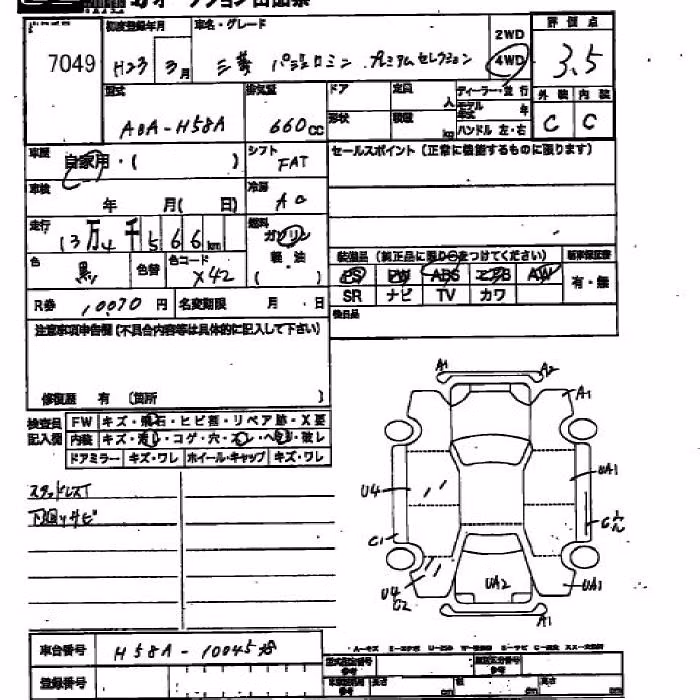 初度登録年月 車名・グレード 2WD 評価点
7049 H23 3月 三菱 パジェロミニ プレミアムセレクション 4WD 3.5
型式 排気量 ドア 定員 人 ディーラー・並行 外装 内装
ABA-H58A 660cc 形状 積載 kg モデル年式 年 ハンドル 左・右 C C
車歴 自家用・( ) シフト FAT セールスポイント(正常に機能するものに限ります)
車検 年 月( 日) 冷房 AC
走行 13万4千566km 燃料 ガソリン
装備品(純正品に限り○をつけてください) 新車保証書
色 黒 色替 色コード X42 軽・油 ( ) PS PW ABS エアB AW 有・無
SR ナビ TV カワ
R券 10070円 名変期限 月・日 後日品
注意事項申告欄(不具合内容等は具体的に記入して下さい)
修復歴 有 〔箇所 〕
検査員 FW キズ・飛石・ヒビ割・リペア跡・X要
記入欄 内装 キズ・汚れ・コゲ・穴・スレ・破レ
ドアミラー キズ・ワレ ホイール・キャップ キズ・ワレ
スタッドレスT
下廻りサビ
A1 A2
A1
U4 UA1
C1
U4 C2 UA2 UA1
A1
車台番号 H58A-10045
登録番号
型式指定番号 類別区分番号
長さ cm 幅 cm 高さ cm